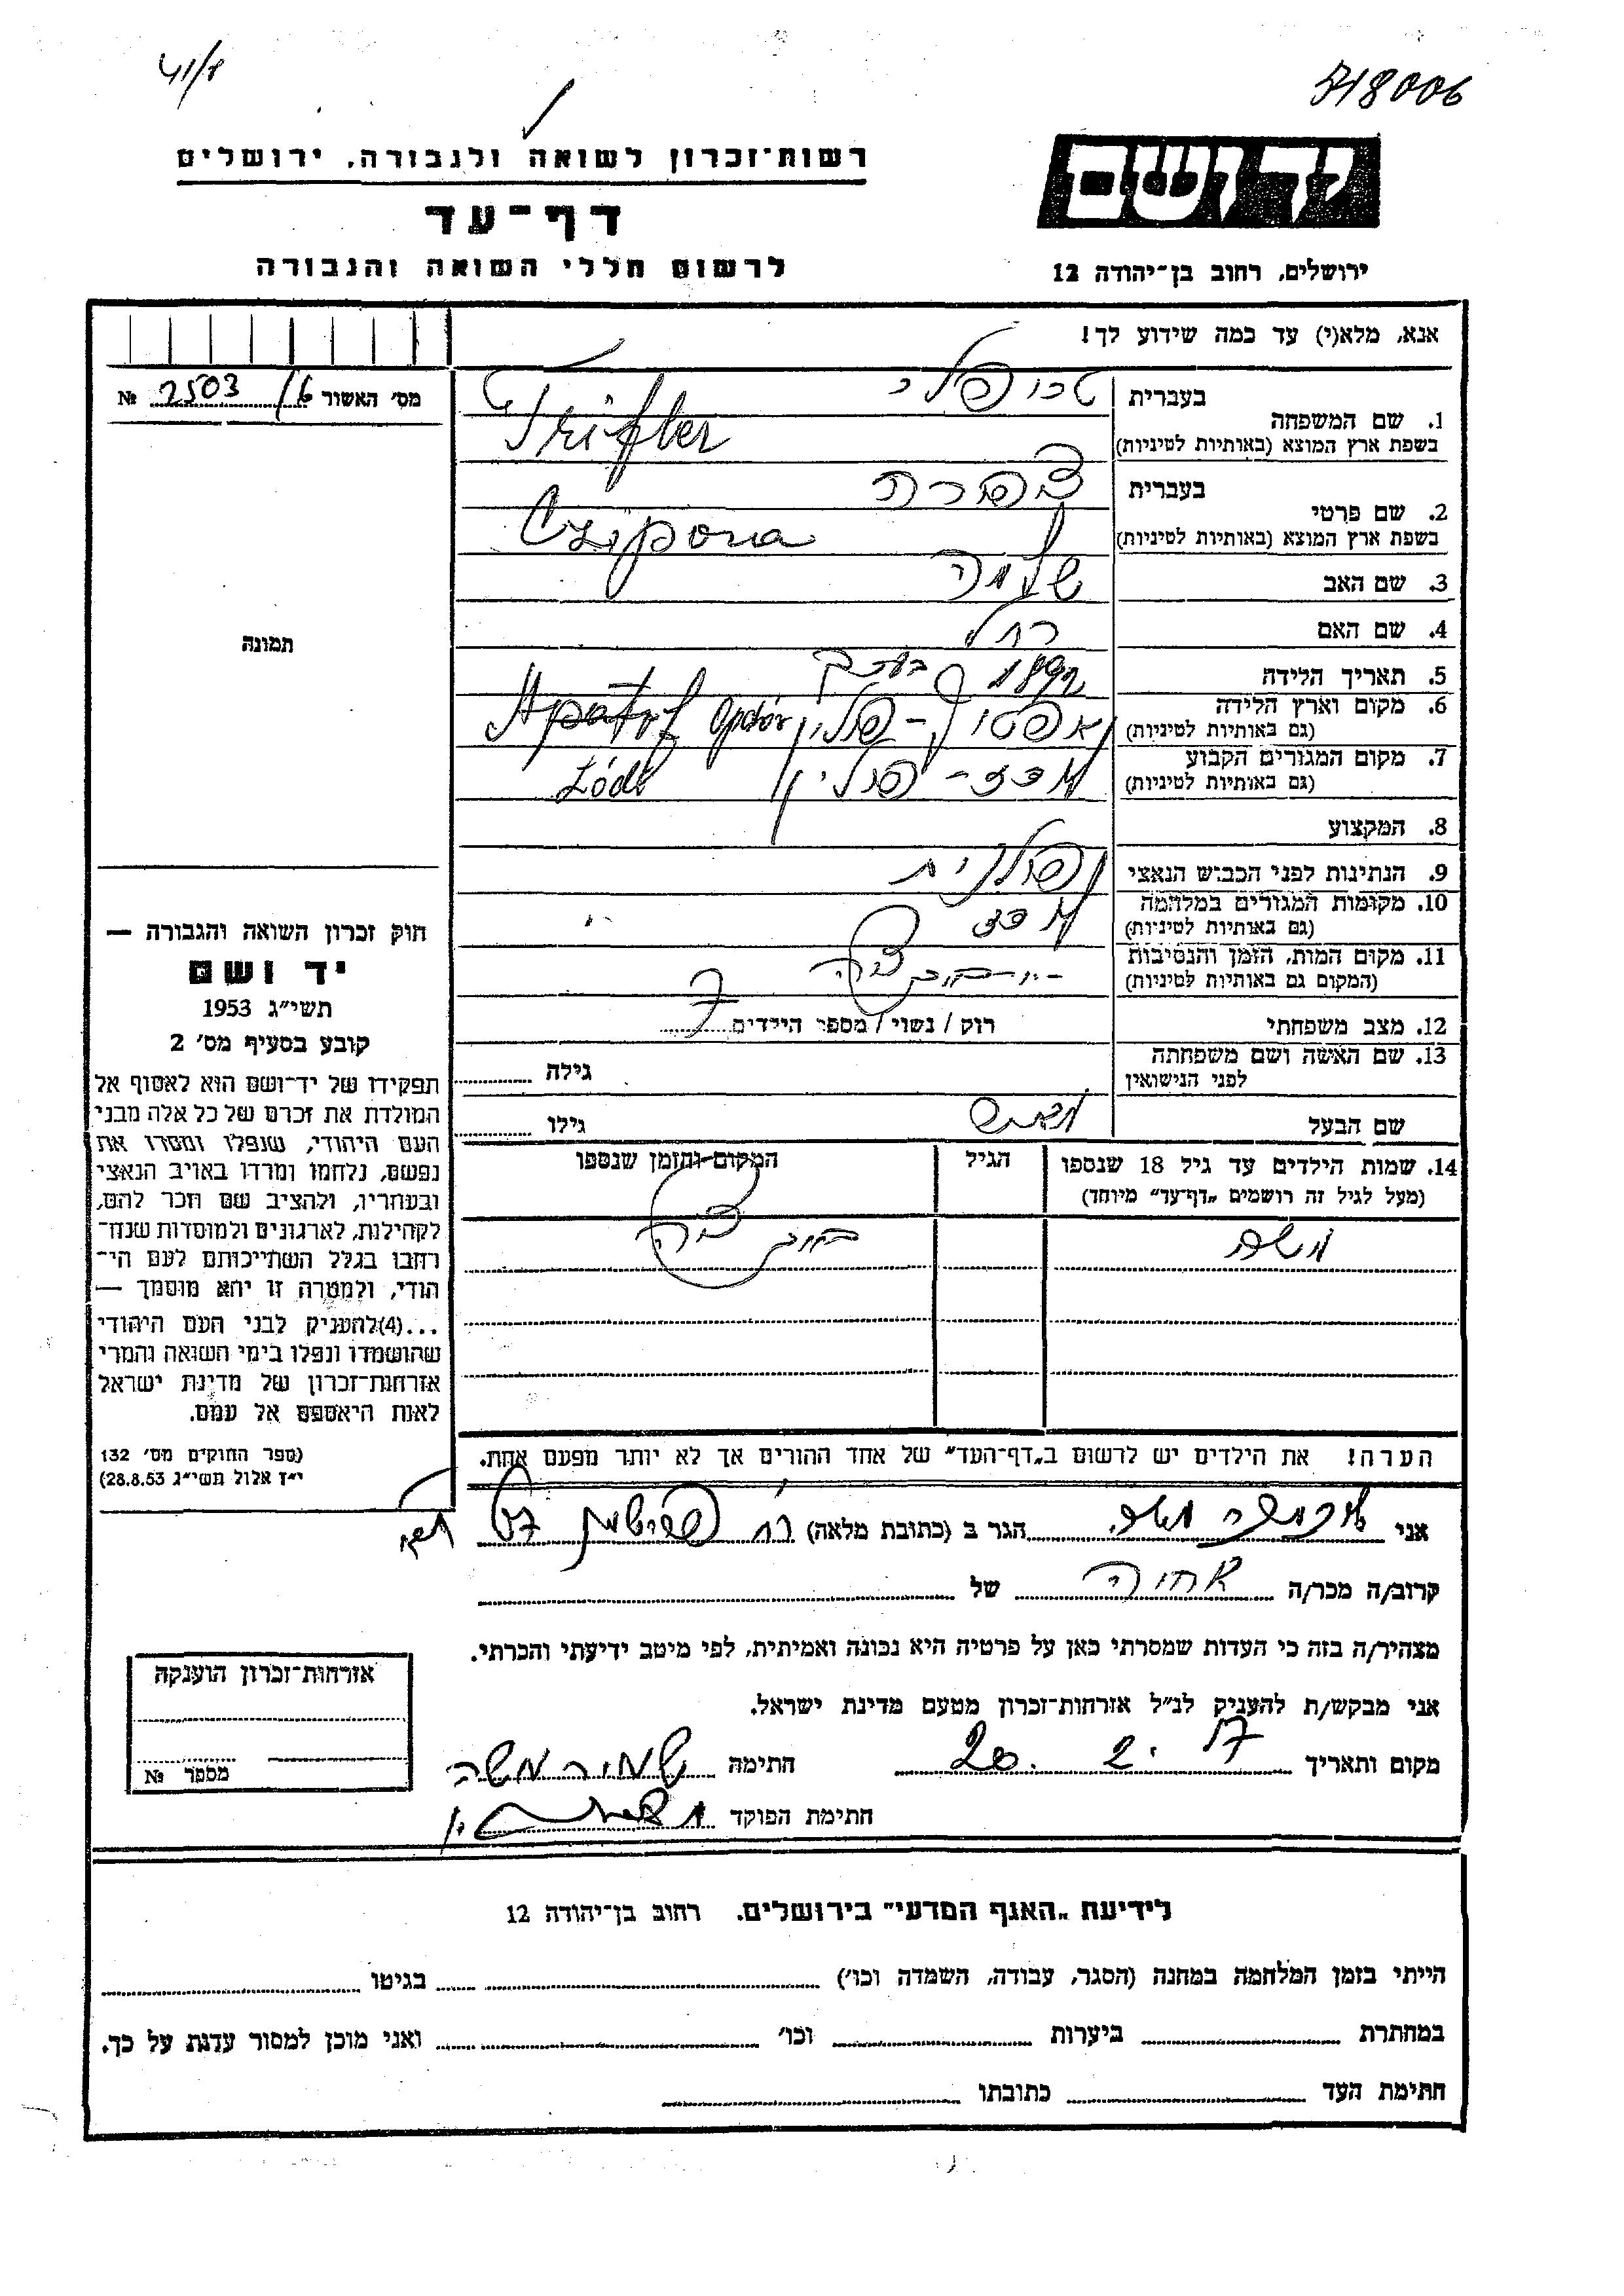 41/8
718006
רשות־זכרון לשואה ולגבורה, ירושלים
יד ושם
דף־עד
לרשום חללי השואה והגבורה
ירושלים, רחוב בן־יהודה 12
אנא, מלא(י) עד כמה שידוע לך!
מס׳ האשור 16/ 2503 №
בעברית
1. שם המשפחה
בשפת ארץ המוצא (באותיות לטיניות) Trifler
בעברית צפורה
2. שם פרטי
בשפת ארץ המוצא (באותיות לטיניות) Czipora
3. שם האב שלמה
4. שם האם רחל
5. תאריך הלידה 1892
6. מקום וארץ הלידה
(גם באותיות לטיניות) אפטוב - פולין
7. מקום המגורים הקבוע
(גם באותיות לטיניות) לודז - פולין Łódź
8. המקצוע
9. הנתינות לפני הכבוש הנאצי פולנית
10. מקומות המגורים במלחמה
(גם באותיות לטיניות) לודז
11. מקום המות, הזמן והנסיבות
(המקום גם באותיות לטיניות)
12. מצב משפחתי רוק / נשוי / מספר הילדים 7
13. שם האשה ושם משפחתה
לפני הנישואין גילה
שם הבעל גילו
14. שמות הילדים עד גיל 18 שנספו
(מעל לגיל זה רושמים „דף־עד״ מיוחד)
הגיל
המקום והזמן שנספו
משה
הערה! את הילדים יש לרשום ב„דף־העד״ של אחד ההורים אך לא יותר מפעם אחת.
תמונה
חוק זכרון השואה והגבורה —
יד ושם
תשי״ג 1953
קובע בסעיף מס׳ 2
תפקידו של יד־ושם הוא לאסוף אל
המולדת את זכרם של כל אלה מבני
העם היהודי, שנפלו ומסרו את
נפשם, נלחמו ומרדו באויב הנאצי
ובעוזריו, ולהציב שם וזכר להם,
לקהילות, לארגונים ולמוסדות שנח־
רבו בגלל השתייכותם לעם הי־
הודי, ולמטרה זו יהא מוסמך —
...(4) להעניק לבני העם היהודי
שהושמדו ונפלו בימי השואה והמרי
אזרחות־זכרון של מדינת ישראל
לאות היאספם אל עמם.
(ספר החוקים מס׳ 132
י״ז אלול תשי״ג 28.8.53)
אני הגר ב (כתובת מלאה)
קרוב/ה מכר/ה של
מצהיר/ה בזה כי העדות שמסרתי כאן על פרטיה היא נכונה ואמיתית, לפי מיטב ידיעתי והכרתי.
אני מבקש/ת להעניק לנ״ל אזרחות־זכרון מטעם מדינת ישראל.
מקום ותאריך 20. 2. חתימה שמיר משה
חתימת הפוקד
אזרחות־זכרון הוענקה
מספר №
לידיעת „האגף המדעי״ בירושלים, רחוב בן־יהודה 12
הייתי בזמן המלחמה במחנה (הסגר, עבודה, השמדה וכו׳) בגיטו
במחתרת ביערות וכו׳ ואני מוכן למסור עדות על כך.
חתימת העד כתובתו